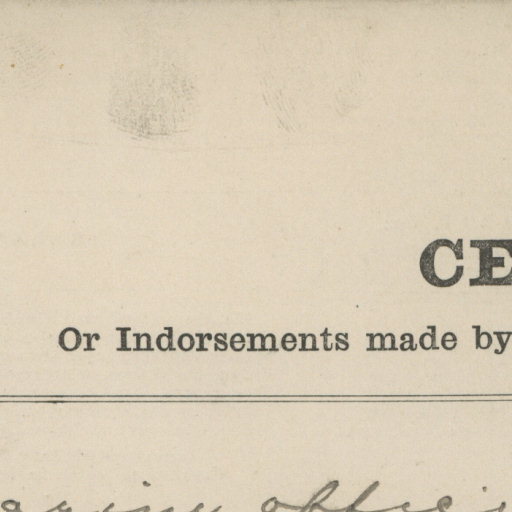 CE
Or Indorsements made by